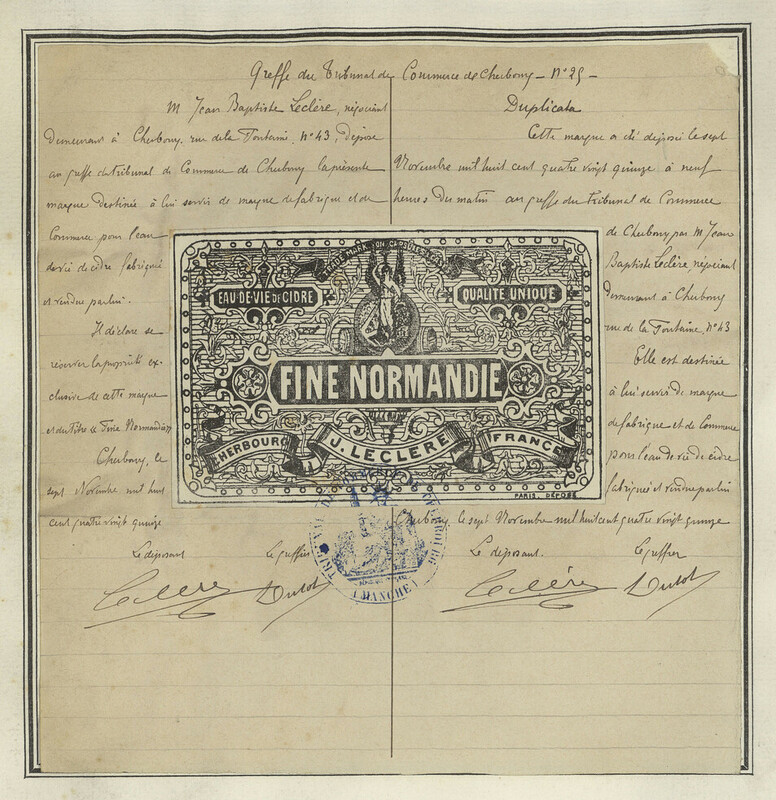 Greffe du Tribunal de Commerce de Cherbourg - N° 25 -
M Jean Baptiste Leclère, négociant
demeurant à Cherbourg, rue de la Fontaine, N° 43, dépose
au greffe du tribunal de Commerce de Cherbourg la présente
marque destinée à lui servir de marque de fabrique et de
Commerce pour l'eau
de vie de cidre fabriquée
et vendue par lui.
Il déclare se
réserver la propriété ex-
clusive de cette marque
et du titre de Fine Normandie
Cherbourg, le
sept Novembre mil huit
cent quatre vingt quinze
Le déposant Le greffier
Leclère Dutot
Duplicata
Cette marque a été déposée le sept
Novembre mil huit cent quatre vingt quinze à neuf
heures du matin au greffe du Tribunal de Commerce
de Cherbourg par M Jean
Baptiste Leclère négociant
demeurant à Cherbourg
rue de la Fontaine, N° 43
Elle est destinée
à lui servir de marque
de fabrique et de Commerce
pour l'eau de vie de cidre
fabriquée et vendue par lui
Cherbourg, le sept Novembre mil huit cent quatre vingt quinze
Le déposant. Le greffier
Leclère Dutot
TRADE MARK
EAU-DE-VIE DE CIDRE
QUALITÉ UNIQUE
FINE NORMANDIE
CHERBOURG
J. LECLÈRE
FRANCE
PARIS, DÉPOSÉ
TRIBUNAL DE COMMERCE DE CHERBOURG
(MANCHE)